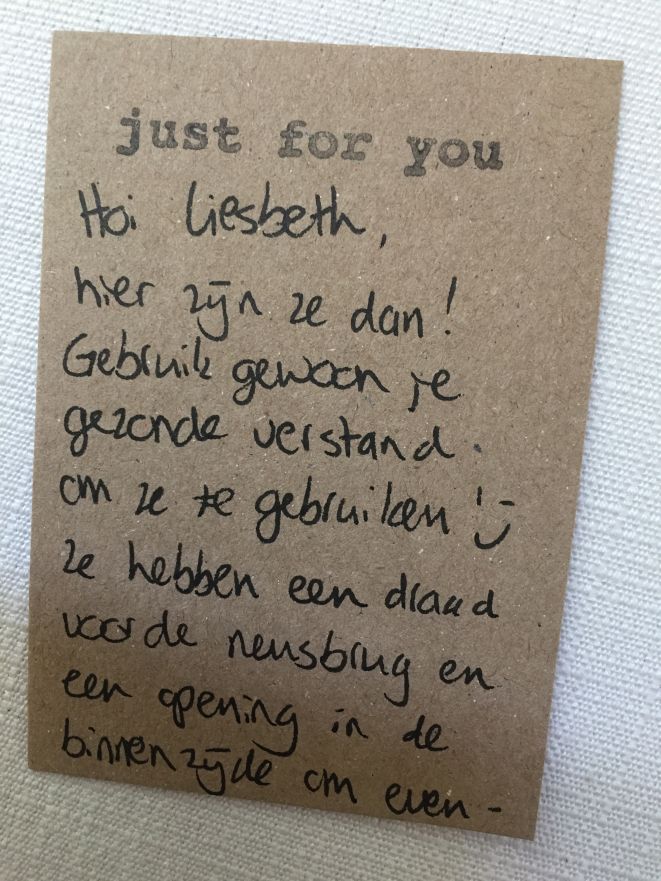 just for you
Hoi Liesbeth,
hier zijn ze dan!
Gebruik gewoon je
gezonde verstand.
om ze te gebruiken !
ze hebben een draad
voor de neusbrug en
een opening in de
binnenzijde om even-